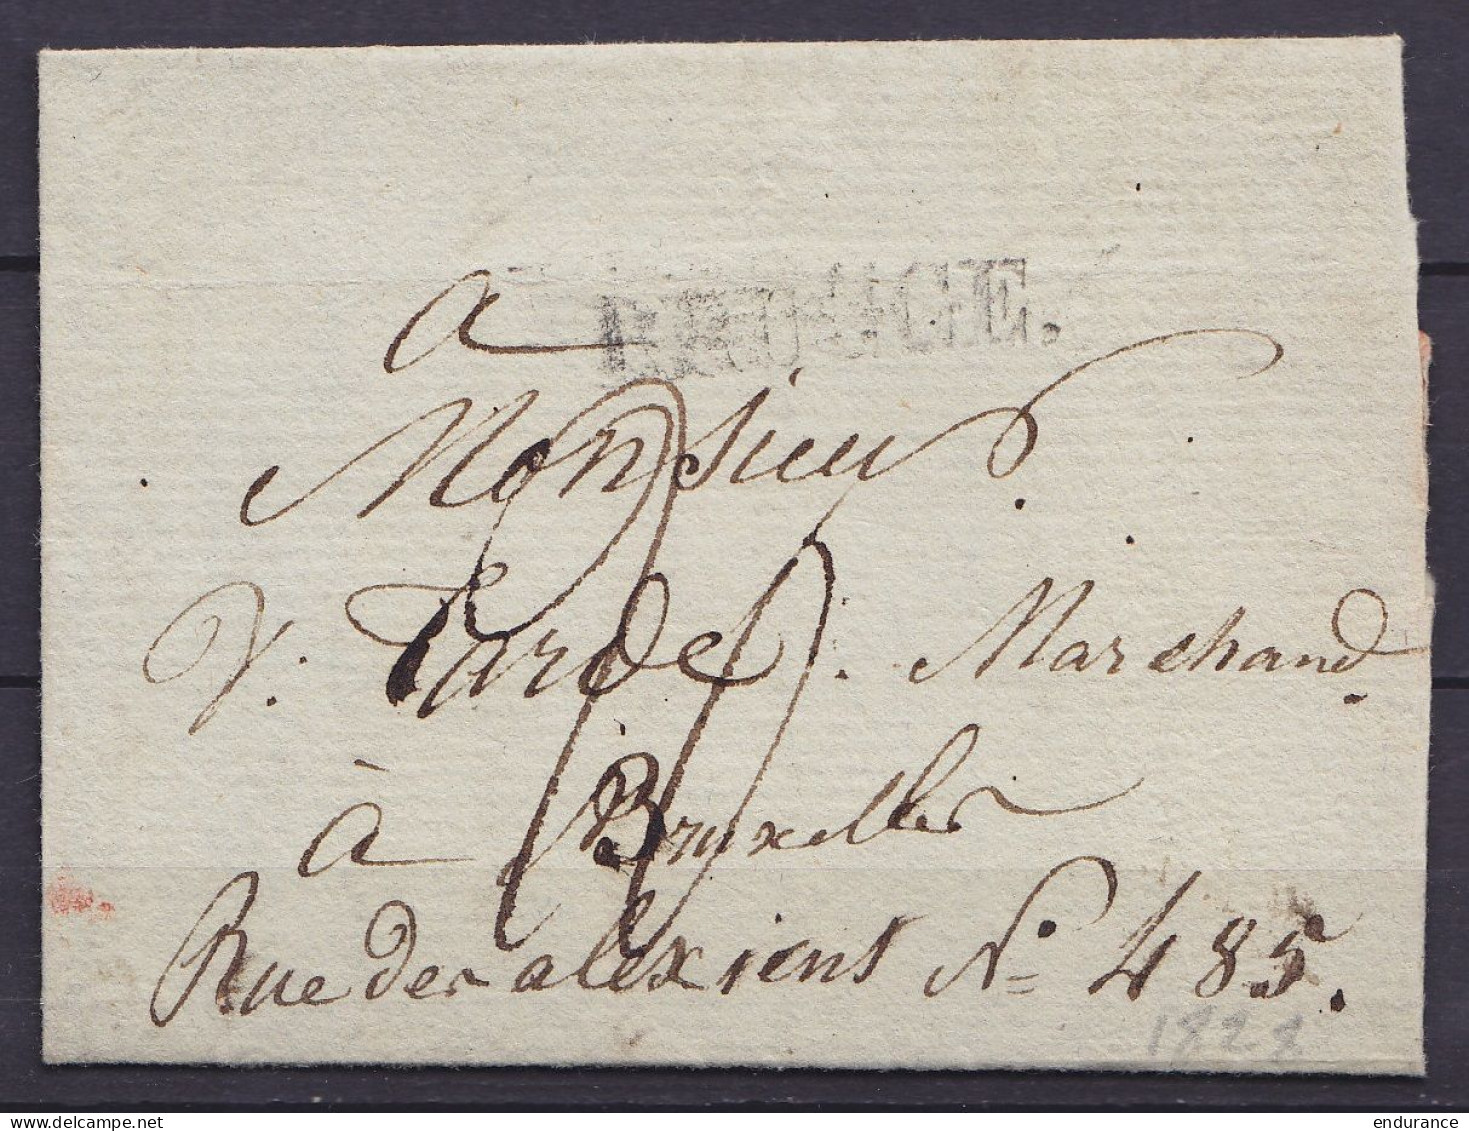 a
Monsieur
V. Tardel. Marchand
à Bruxelles
Rue des alexiens No. 485.
1828
endurance